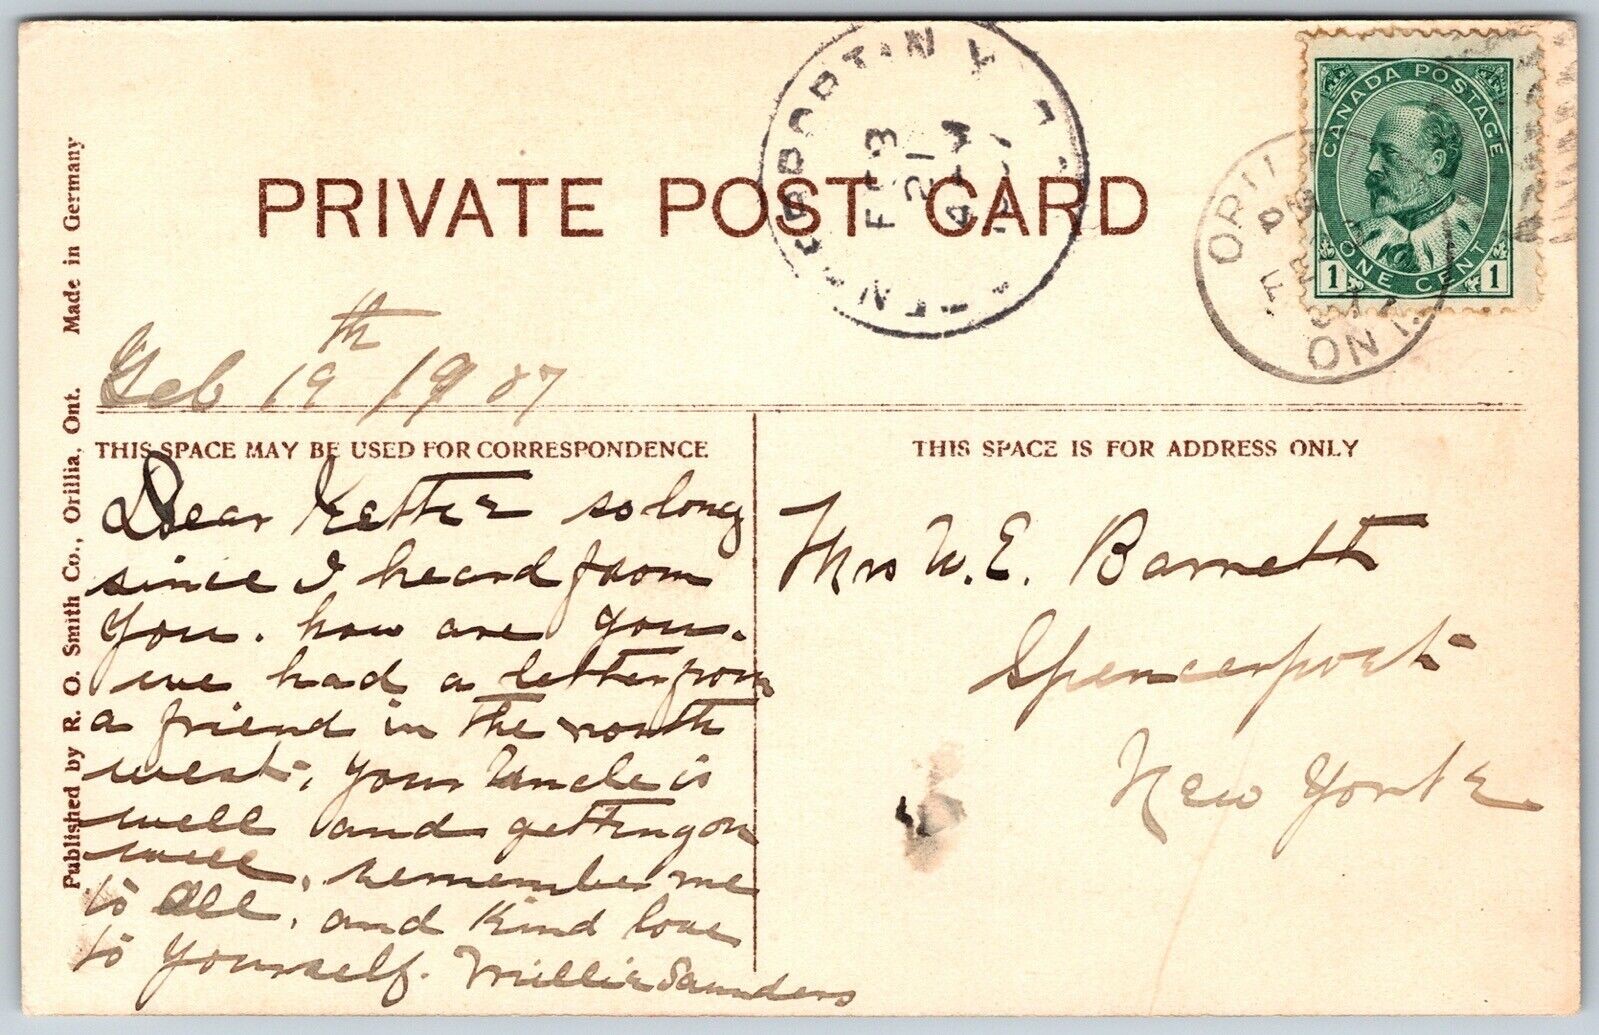 PRIVATE POST CARD
CANADA POSTAGE
1 ONE CENT 1
FEB
21
4
N.Y.
ORILLIA
ONT.
Made in Germany
Published by R. O. Smith Co., Orillia, Ont.
Feb 19th 1907
THIS SPACE MAY BE USED FOR CORRESPONDENCE
THIS SPACE IS FOR ADDRESS ONLY
Dear so long
since I heard from
you. how are you.
we had a letter from
a friend in the north
west, your Uncle is
well and getting on
well, remember me
to all, and kind love
to yourself. Millie Saunders
Mrs W. E. Barnett
Spencerport
New York